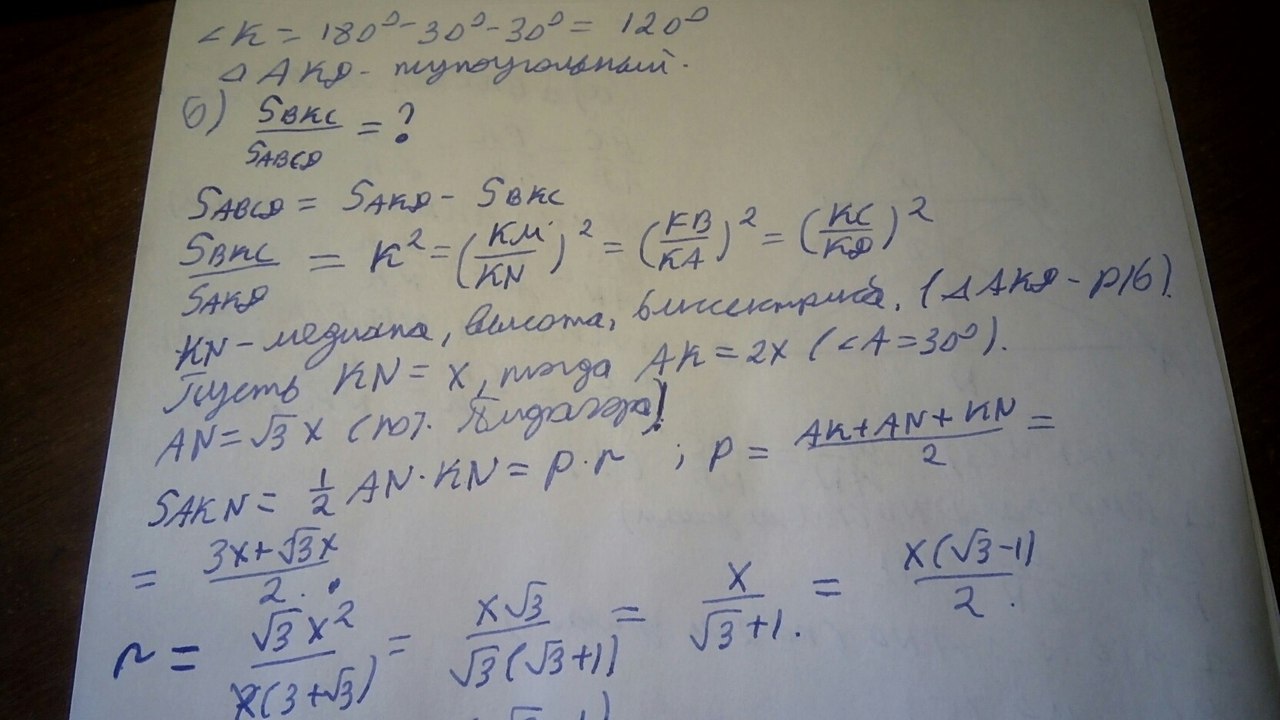 ∠K = 180° - 30° - 30° = 120°
△AKD - тупоугольный.
б) S_BKC / S_ABCD = ?
S_ABCD = S_AKD - S_BKC
S_BKC / S_AKD = K² = (KM/KN)² = (KB/KA)² = (KC/KD)²
KN - медиана, высота, биссектриса. (△AKD - р/б).
Пусть KN = x, тогда AK = 2x (∠A = 30°).
AN = √3 x (по т. Пифагора)
S_AKN = 1/2 AN · KN = p · r ; p = (AK + AN + KN)/2 =
= (3x + √3x)/2.
r = √3 x² / x(3 + √3) = x√3 / √3(√3 + 1) = x / (√3 + 1). = x(√3 - 1)/2.